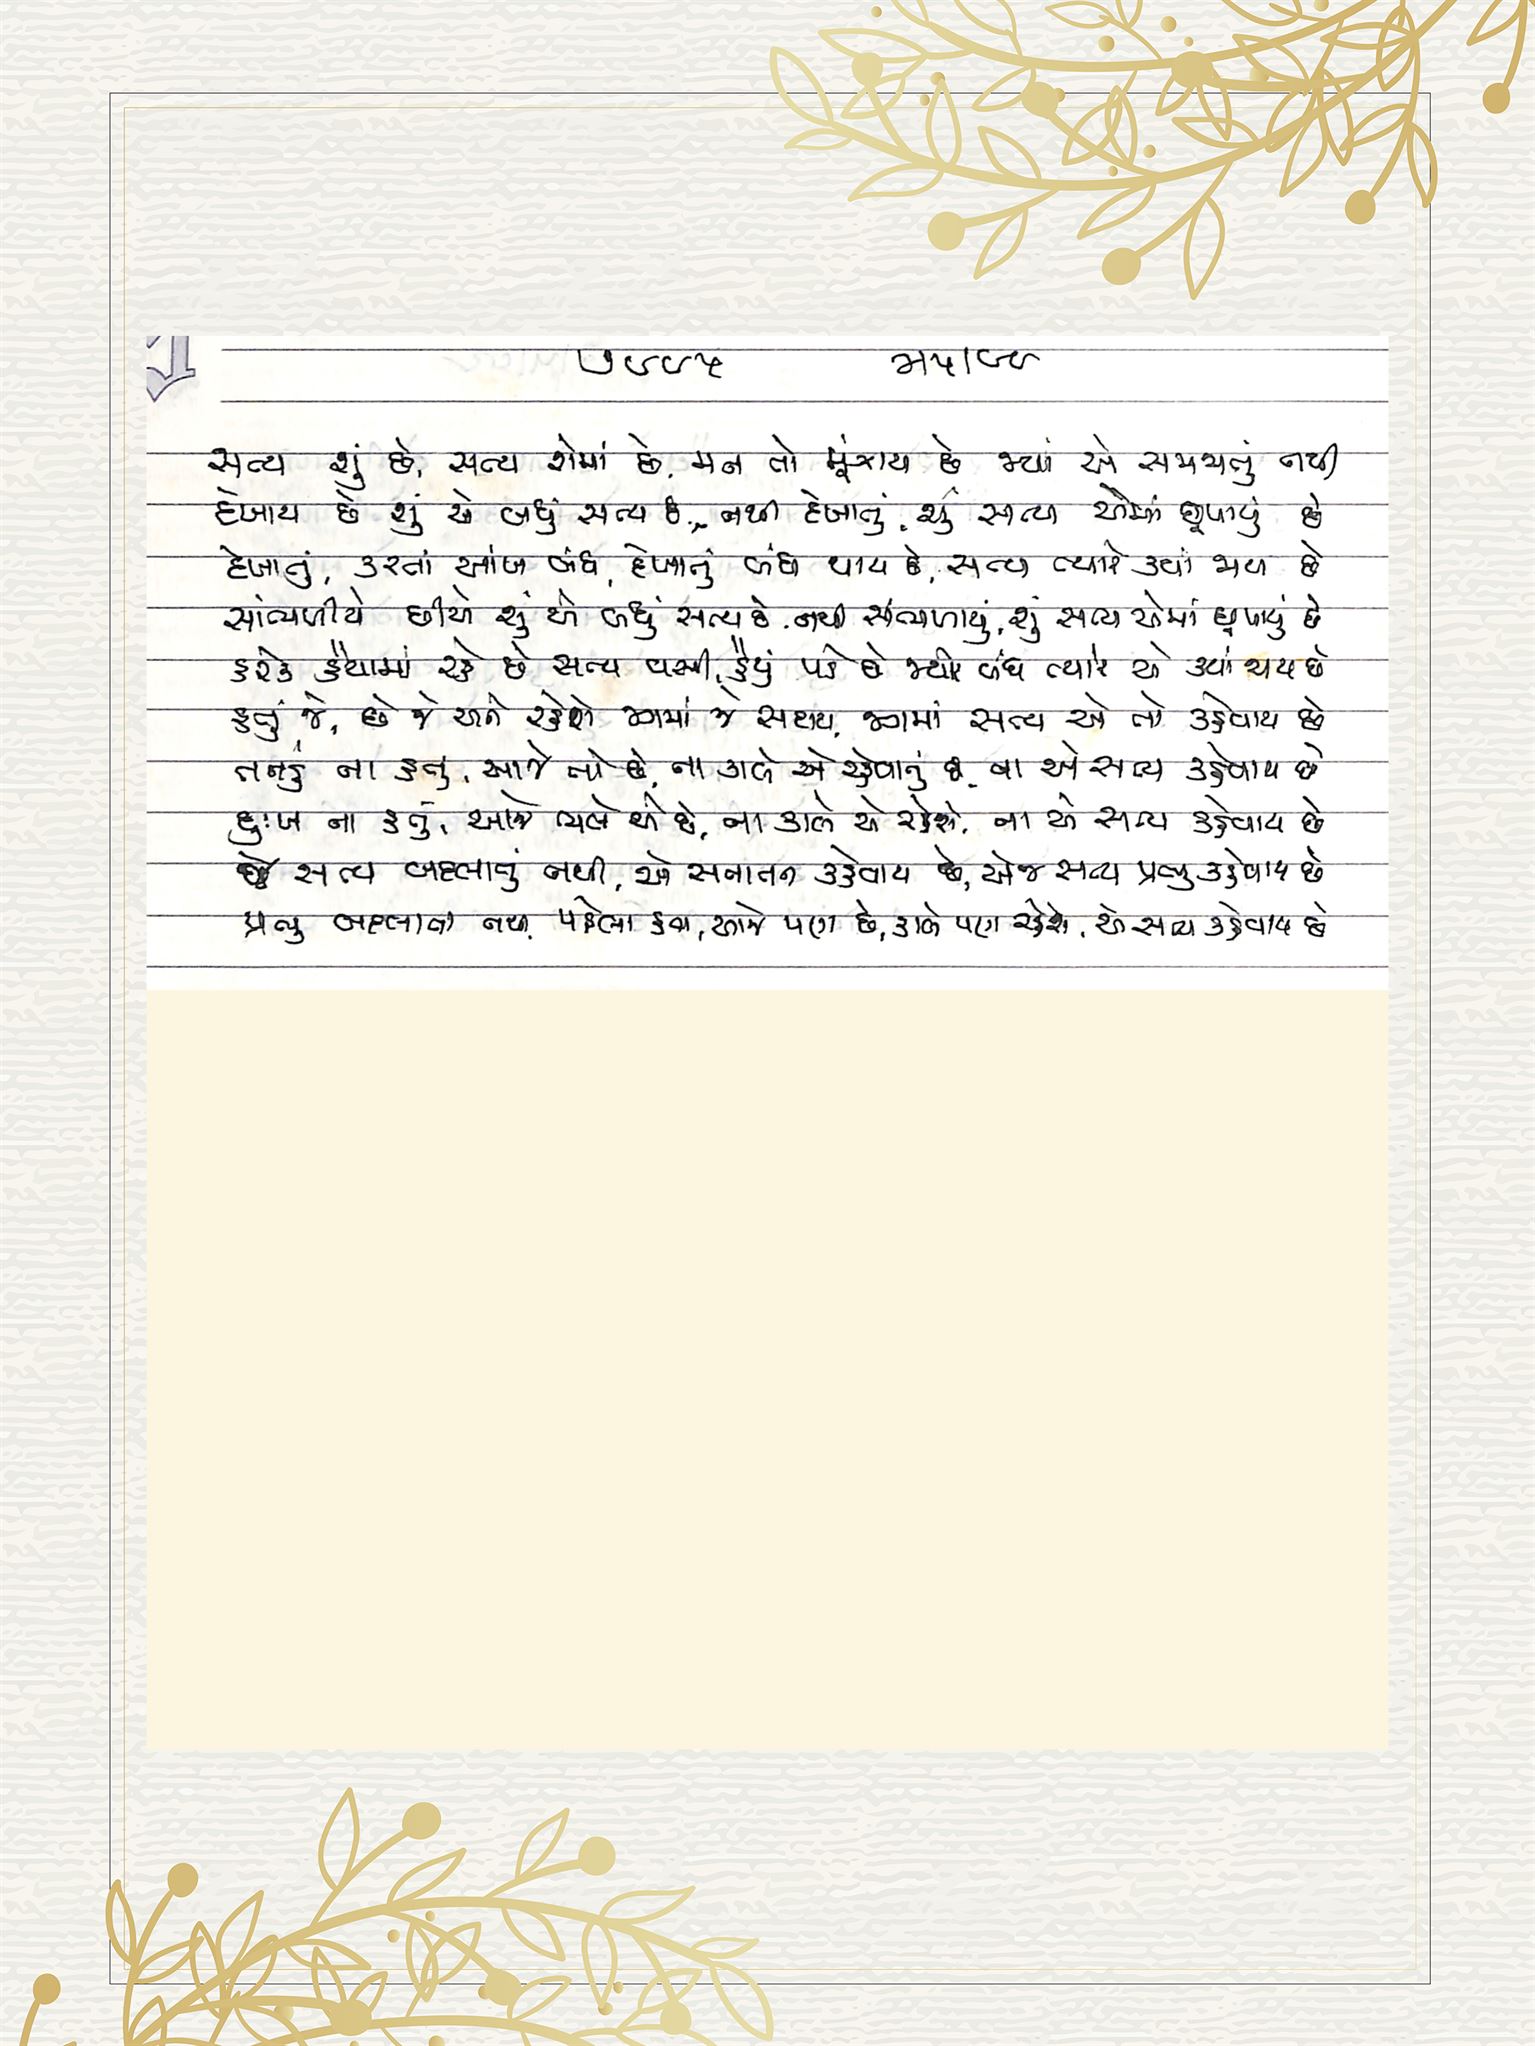 સત્ય શું છે, સત્ય શેમાં છે, મન તો મૂંઝાય છે જ્યાં એ સમજાતું નથી
દેખાય છે શું એ બધું સત્ય છે, નથી દેખાતું, શું સત્ય એમાં છૂપાયું છે
દેખાતું, કરતાં આંખ બંધ, દેખાતું બંધ થાય છે, સત્ય ત્યારે ક્યાં જાય છે
સાંભળીયે છીએ શું એ બધું સત્ય છે. નથી સંભળાયું, શું સત્ય એમાં છૂપાયું છે
હરેક હૈયામાં રહે છે સત્ય વસી, હૈયું પડે છે જ્યારે બંધ ત્યારે એ ક્યાં જાય છે
હતું જે, છે જે અને રહેશે જગમાં જે સદાય, જગમાં સત્ય એ તો કહેવાય છે
તનડું ના હતું, આજે તો છે, ના કાલે એ રહેવાનું છે, ના એ સત્ય કહેવાય છે
દુઃખ ના હતું, આજે ભલે એ છે, ના કાલે એ રહેશે, ના એ સત્ય કહેવાય છે
સત્ય બદલાતું નથી, એ સનાતન કહેવાય છે, એજ સત્ય પ્રભુ કહેવાય છે
પ્રભુ બદલાતા નથી, પહેલા હતા, આજે પણ છે, કાલે પણ રહેશે, એ સત્ય કહેવાય છે